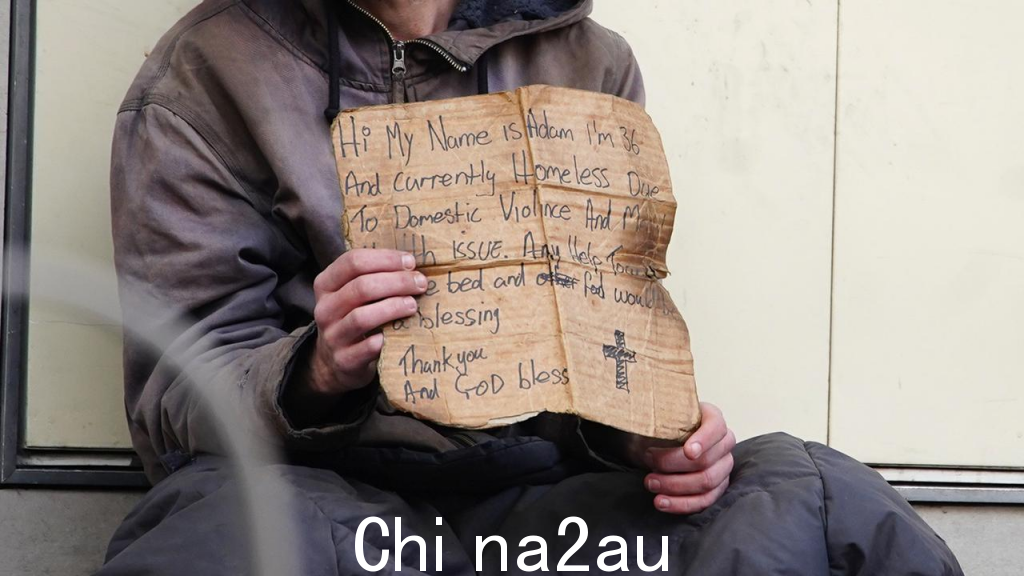 Hi My Name is Adam I'm 36
And Currently Homeless Due
To Domestic Violnce And
ISSUE. Any Help
bed and food would
a blessing
Thank you
And GOD bless
China2au